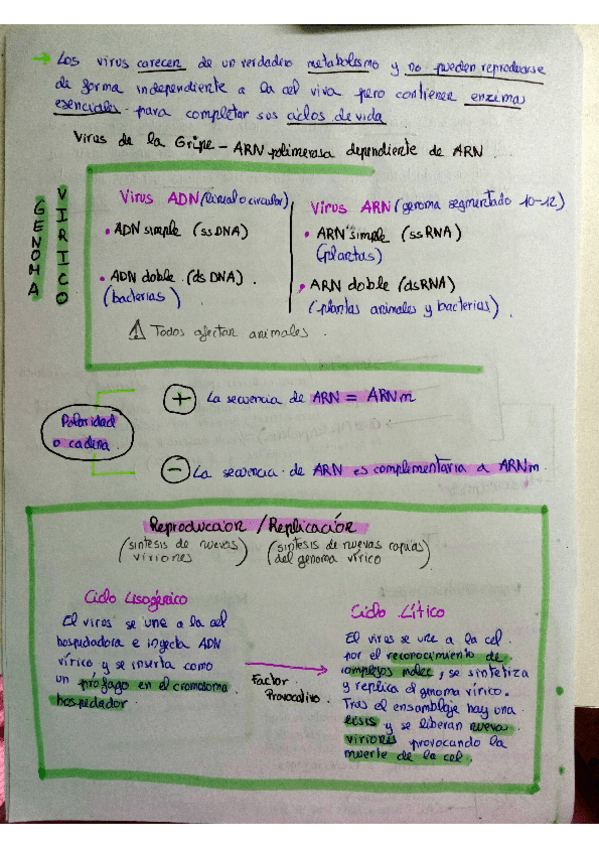 → Los virus carecen de un verdadero metabolismo y no pueden reproducirse
de forma independiente a la cel viva pero contienen enzimas
esenciales para completar sus ciclos de vida
Virus de la Gripe - ARN polimerasa dependiente de ARN
GENOMA VIRICO
Virus ADN (lineal o circular)
• ADN simple (ssDNA)
• ADN doble (dsDNA)
(bacterias)
Virus ARN (genoma segmentado 10-12)
• ARN simple (ssRNA)
(plantas)
• ARN doble (dsRNA)
(plantas animales y bacterias)
⚠ Todos afectan animales
Polaridad
o cadena
+ La secuencia de ARN = ARNm
- La secuencia de ARN es complementaria a ARNm.
Reproducción / Replicación
(síntesis de nuevos
viriones)
(síntesis de nuevas copias
del genoma vírico)
Ciclo Lisogénico
El virus se une a la cel
hospedadora e ingecta ADN
vírico y se inserta como
un prófago en el cromosoma
hospedador
Factor
Provocativo
Ciclo Lítico
El virus se une a la cel.
por el reconocimiento de
complejos molec, se sintetiza
y replica el genoma vírico.
Tras el ensamblaje hay una
lisis y se liberan nuevos
viriones provocando la
muerte de la cel.